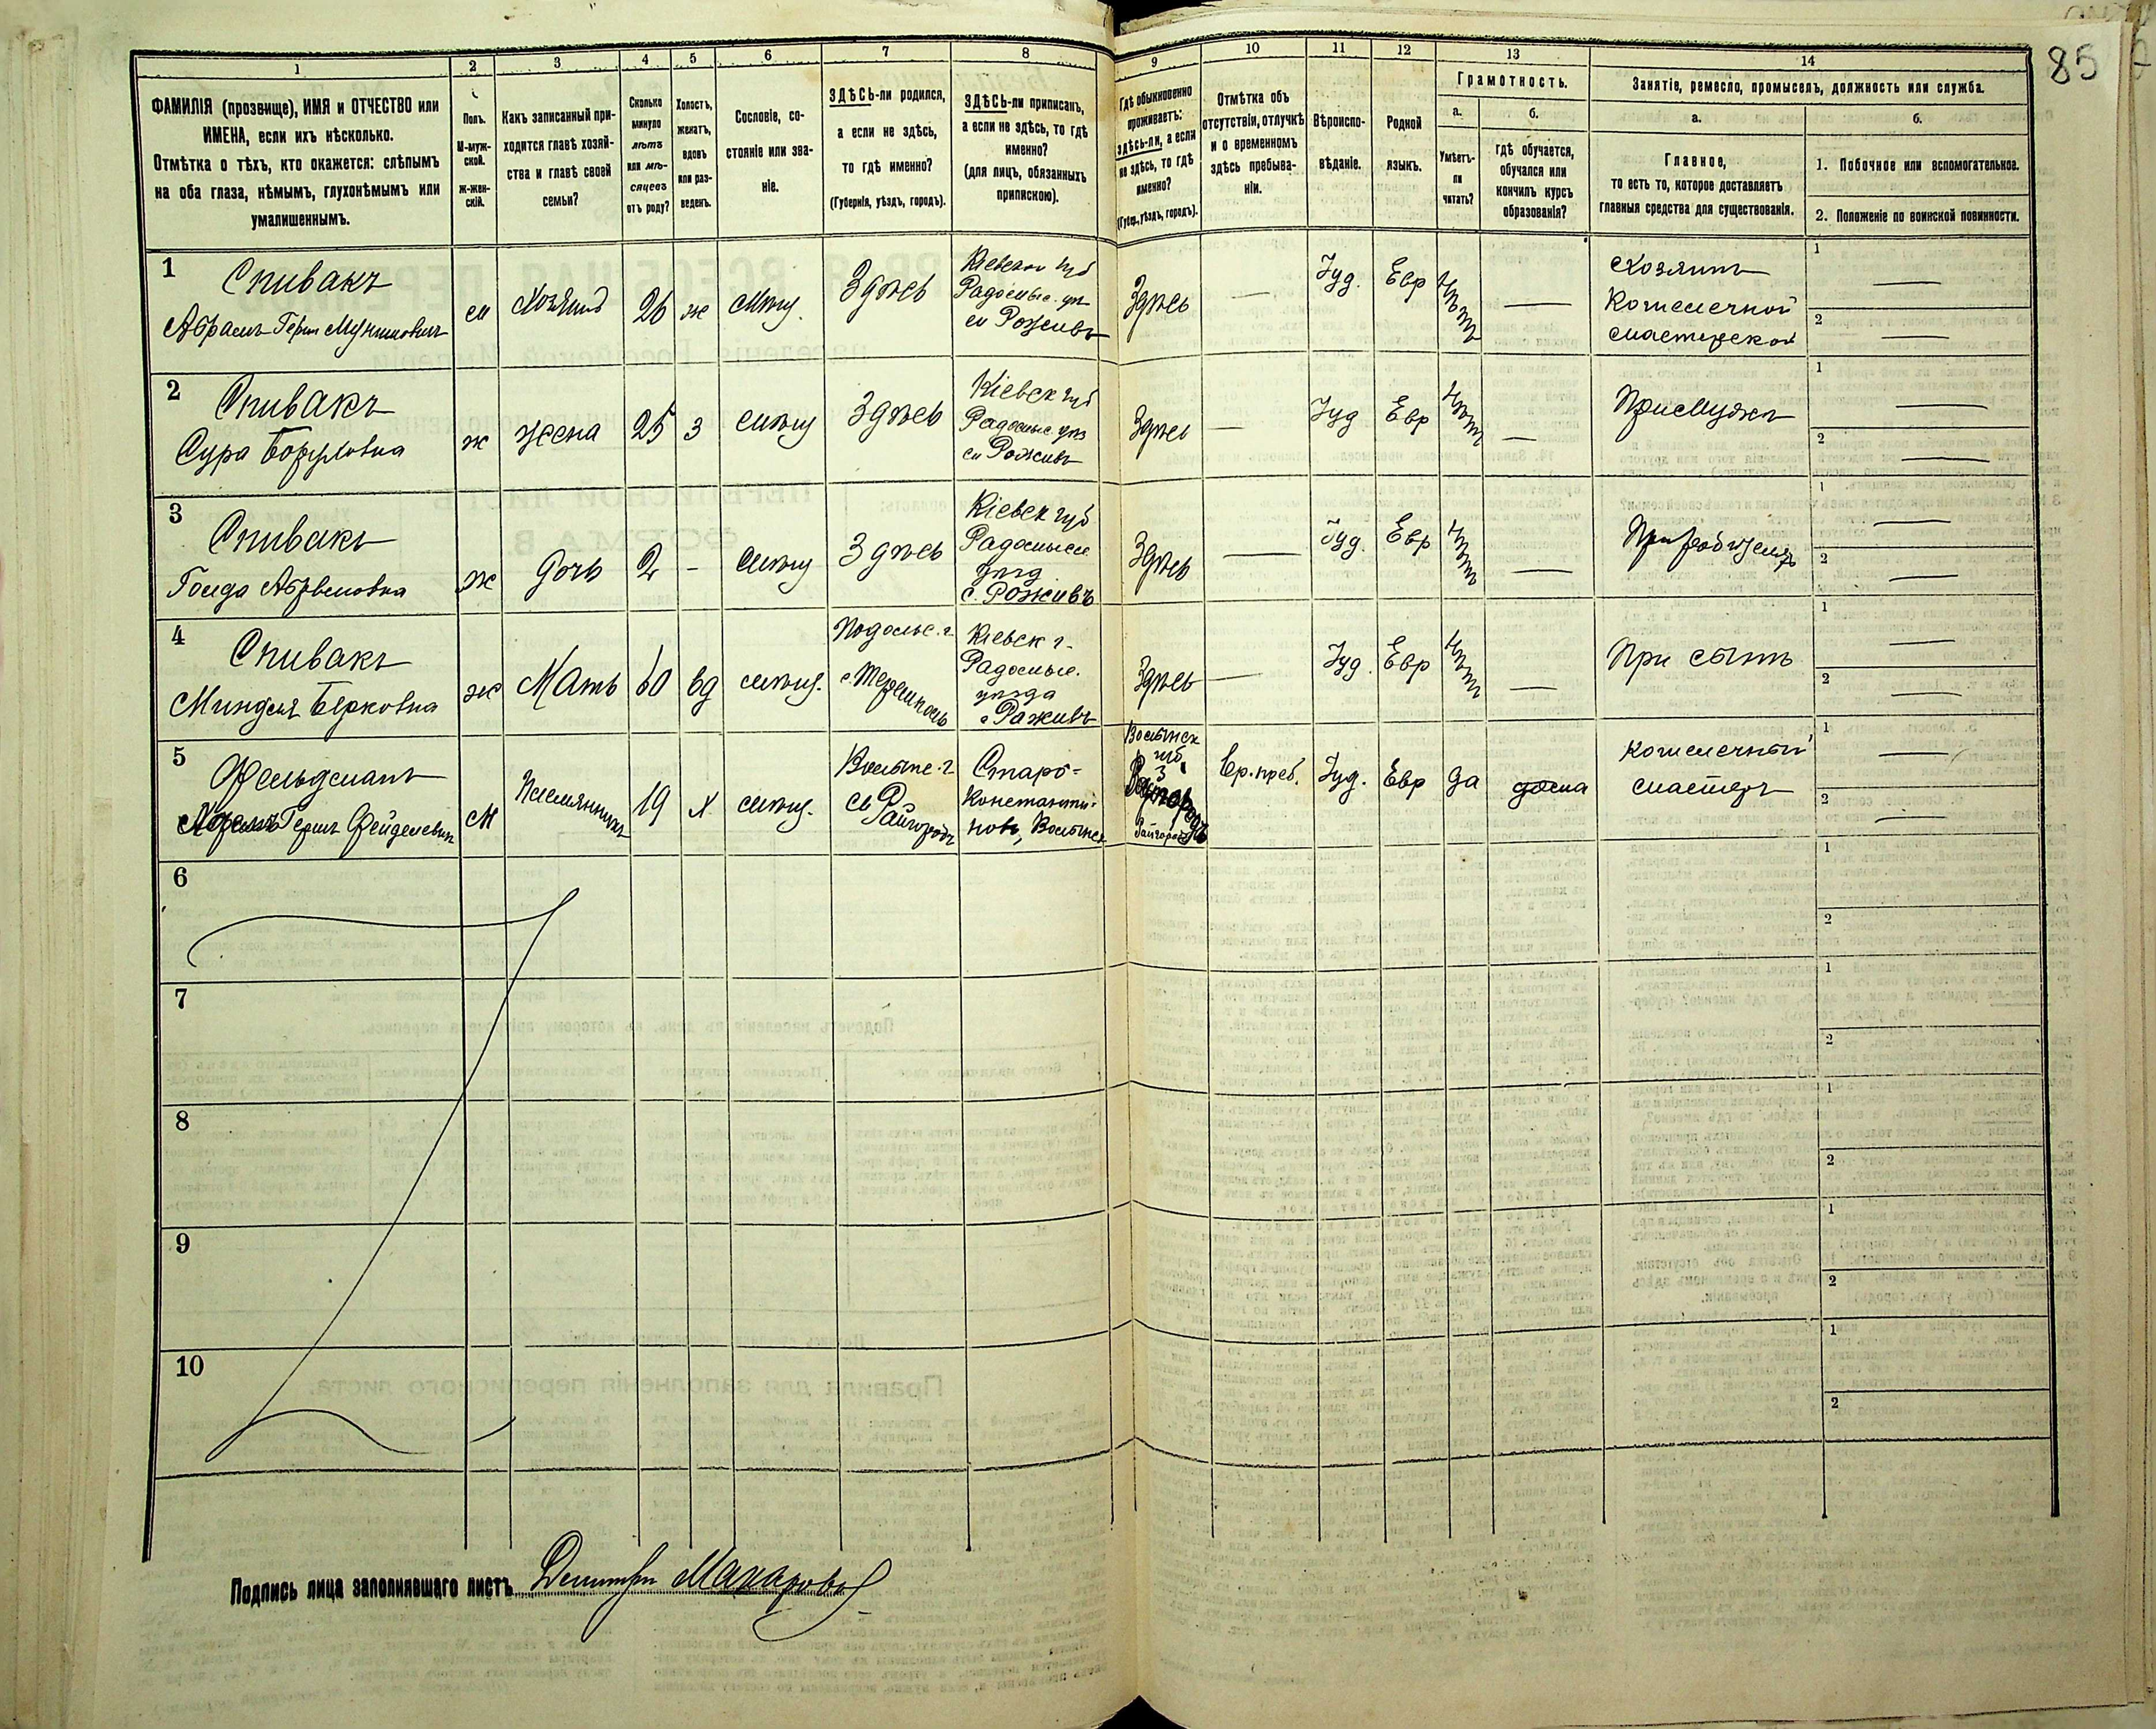 85
1
2
3
4
5
6
7
8
9
10
11
12
13
14
ФАМИЛІЯ (прозвище), ИМЯ и ОТЧЕСТВО или
ИМЕНА, если ихъ нѣсколько.
Отмѣтка о тѣхъ, кто окажется: слѣпымъ
на оба глаза, нѣмымъ, глухонѣмымъ или
умалишеннымъ.
Полъ.
М-муж-
ской.
Ж-жен-
скій.
Какъ записанный при-
ходится главѣ хозяй-
ства и главѣ своей
семьи?
Сколько
минуло
лѣтъ
или мѣ-
сяцевъ
отъ роду?
Холостъ,
женатъ,
вдовъ
или раз-
веденъ.
Сословіе, со-
стояніе или зва-
ніе.
ЗДѢСЬ-ли родился,
а если не здѣсь,
то гдѣ именно?
(Губернія, уѣздъ, городъ).
ЗДѢСЬ-ли приписанъ,
а если не здѣсь, то гдѣ
именно?
(для лицъ, обязанныхъ
припискою).
Гдѣ обыкновенно
проживаетъ:
здѣсь-ли, а если
не здѣсь, то гдѣ
именно?
(Губер., уѣздъ, городъ).
Отмѣтка объ
отсутствіи, отлучкѣ
и о временномъ
здѣсь пребыва-
ніи.
Вѣроиспо-
вѣданіе.
Родной
языкъ.
Грамотность.
а.
б.
Умѣетъ-
ли
читать?
гдѣ обучается,
обучался или
кончилъ курсъ
образованія?
Занятіе, ремесло, промыселъ, должность или служба.
а.
б.
Главное,
то есть то, которое доставляетъ
главныя средства для существованія.
1. Побочное или вспомогательное.
2. Положеніе по воинской повинности.
1
Спивакъ
Абрамъ Герш
м
Хозяинъ
26
ж
мѣщ.
Здѣсь
Кіевской губ
Радомыс. уѣ
м Рожевъ
Здѣсь
—
Іуд.
Евр
Нѣтъ
—
Хозяинъ
мастерской
1
—
2
—
2
Спивакъ
Сура
ж
жена
25
з
мѣщ
Здѣсь
Кіевск губ
Радомыс. уѣз
м Рожевъ
Здѣсь
—
Іуд
Евр
Нѣтъ
—
При мужѣ
1
—
2
—
3
Спивакъ
Абрамовна
ж
дочь
2
-
мѣщ
Здѣсь
Кіевск губ
Радомысл
уѣзд
с. Рожевъ
Здѣсь
—
Іуд.
Евр
Нѣтъ
—
При родителяхъ
1
—
2
—
4
Спивакъ
Миндля Берковна
ж
Мать
60
вд
мѣщ.
Подольс. г.
Кіевск г.
Радомыс.
уѣзда
Здѣсь
—
Іуд.
Евр
Нѣтъ
—
При сынѣ
1
—
2
—
5
Фельдманъ
Герш
м
Племянникъ
19
х
мѣщ.
Волынс. г.
Райгородъ
Старо-
Константи-
новъ, Волынск
Волынск
губ
Райгородъ
Вр. преб.
Іуд.
Евр
да
дома
мастеръ
1
—
2
—
6
1
2
7
1
2
8
1
2
9
1
2
10
1
2
Подпись лица заполнявшаго листъ Дмитри